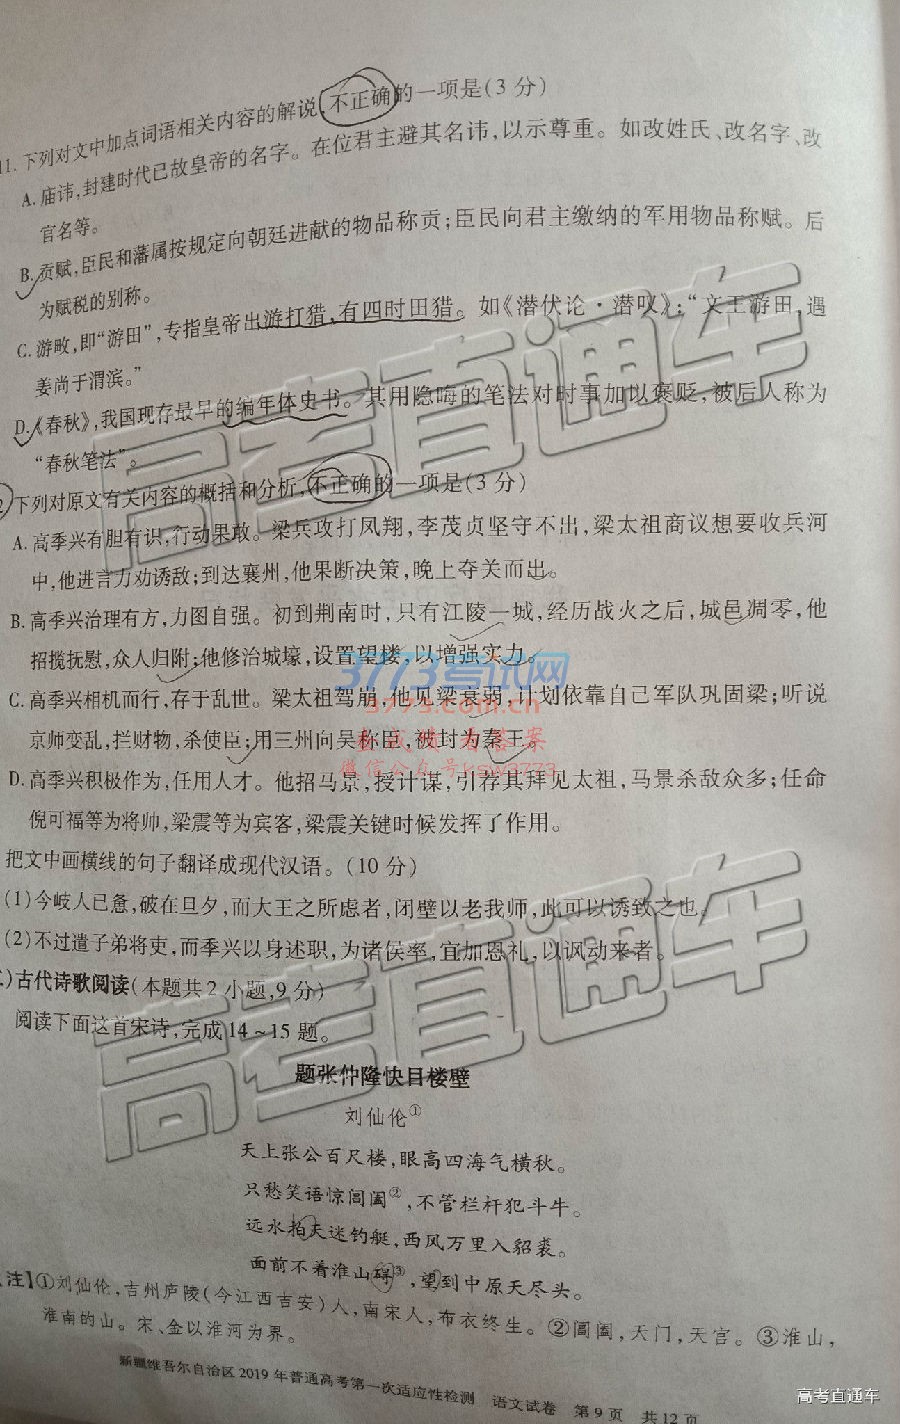 11. 下列对文中加点词语相关内容的解说,不正确的一项是(3 分)
A. 庙讳,封建时代已故皇帝的名字。在位君主避其名讳,以示尊重。如改姓氏、改名字、改
官名等。
B. 贡赋,臣民和藩属按规定向朝廷进献的物品称贡;臣民向君主缴纳的军用物品称赋。后
为赋税的别称。
C. 游畋,即“游田”,专指皇帝出游打猎,有四时田猎。如《潜伏论·潜叹》:“文王游田,遇
姜尚于渭滨。”
D.《春秋》,我国现存最早的编年体史书。其用隐晦的笔法对时事加以褒贬,被后人称为
“春秋笔法”。
下列对原文有关内容的概括和分析,不正确的一项是(3 分)
A. 高季兴有胆有识,行动果敢。梁兵攻打凤翔,李茂贞坚守不出,梁太祖商议想要收兵河
中,他进言力劝诱敌;到达襄州,他果断决策,晚上夺关而出。
B. 高季兴治理有方,力图自强。初到荆南时,只有江陵一城,经历战火之后,城邑凋零,他
招揽抚慰,众人归附;他修治城壕,设置望楼,以增强实力。
C. 高季兴相机而行,存于乱世。梁太祖驾崩,他见梁衰弱,计划依靠自己军队巩固梁;听说
京师变乱,拦财物,杀使臣;用三州向吴称臣,被封为秦王。
D. 高季兴积极作为,任用人才。他招马景,授计谋,引荐其拜见太祖,马景杀敌众多;任命
倪可福等为将帅,梁震等为宾客,梁震关键时候发挥了作用。
把文中画横线的句子翻译成现代汉语。(10 分)
(1)今岐人已惫,破在旦夕,而大王之所虑者,闭壁以老我师,此可以诱致之也。
(2)不过遣子弟将吏,而季兴以身述职,为诸侯率,宜加恩礼,以讽动来者。
)古代诗歌阅读(本题共 2 小题,9 分)
阅读下面这首宋诗,完成 14~15 题。
题张仲隆快目楼壁
刘仙伦①
天上张公百尺楼,眼高四海气横秋。
只愁笑语惊阊阖②,不管栏杆犯斗牛。
远水拍天迷钓艇,西风万里入貂裘。
面前不着淮山碍③,望到中原天尽头。
注】①刘仙伦,吉州庐陵(今江西吉安)人,南宋人,布衣终生。②阊阖,天门,天宫。③淮山,
淮南的山。宋、金以淮河为界。
新疆维吾尔自治区 2019 年普通高考第一次适应性检测 语文试卷 第 9 页 共 12 页
高考直通车
高考直通车
3773考试网
3773.com.cn
微信公众号ksw3773
高考直通车